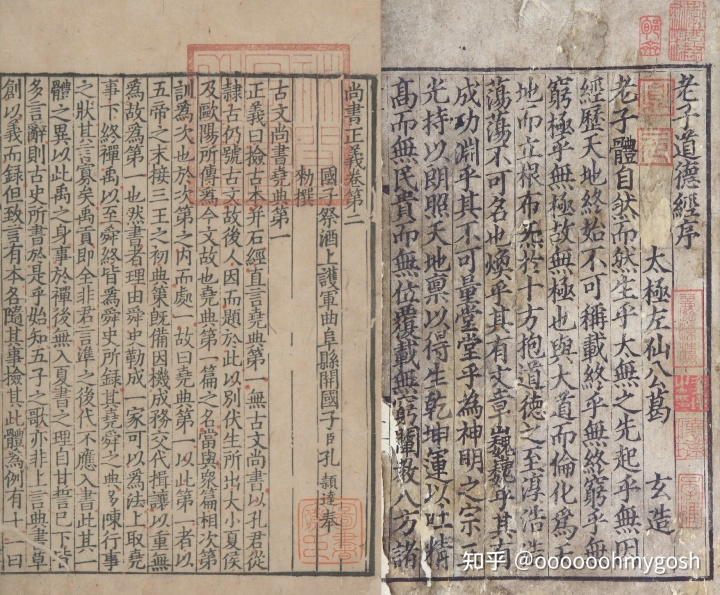 老子道德經序
太極左仙公葛 玄造
老子體自然而然生乎太無之先起乎無因
經歷天地終始不可稱載終乎無終窮乎無
窮極乎無極故無極也與大道而倫化為天
地而立根布炁於十方抱道德之至淳浩浩
蕩蕩不可名也煥乎其有文章巍巍乎其有
成功淵乎其不可量堂堂乎為神明之宗三
光持以朗照天地稟以得生乾坤運以吐精
高而無民貴而無位覆載無窮闡教八方諸
尚書正義卷第二
國子祭酒上護軍曲阜縣開國子臣孔 穎達奉
勑撰
古文尚書堯典第一
正義曰檢古本并石經直言堯典第一無古文尚書以孔君從
隸古仍號古文故後人因而題於此以別伏生所出大小夏侯
及歐陽所傳為今文故也堯典第一篇之名當與衆篇相次第
訓為次也於次第之内而處一故曰堯典第一以此第一者以
五帝之末接三王之初典策既備因機成務交代揖讓以垂無
為故為第一也然書者理由舜史勒成一家可以為法上取堯
事下終禪禹以至舜終皆為舜史所錄其堯舜之典多陳行事
之狀其言寡矣禹貢即全非君言準之後代不應入書此其一
體之異以此禹之身事於禪後無入夏書之理自甘誓已下皆
多言辭則古史所書於是乎始知五子之歌亦非上言典書草
創以義而錄但致言有本各隨其事檢其此體為例有十一曰
知乎 @ooooooohmygosh